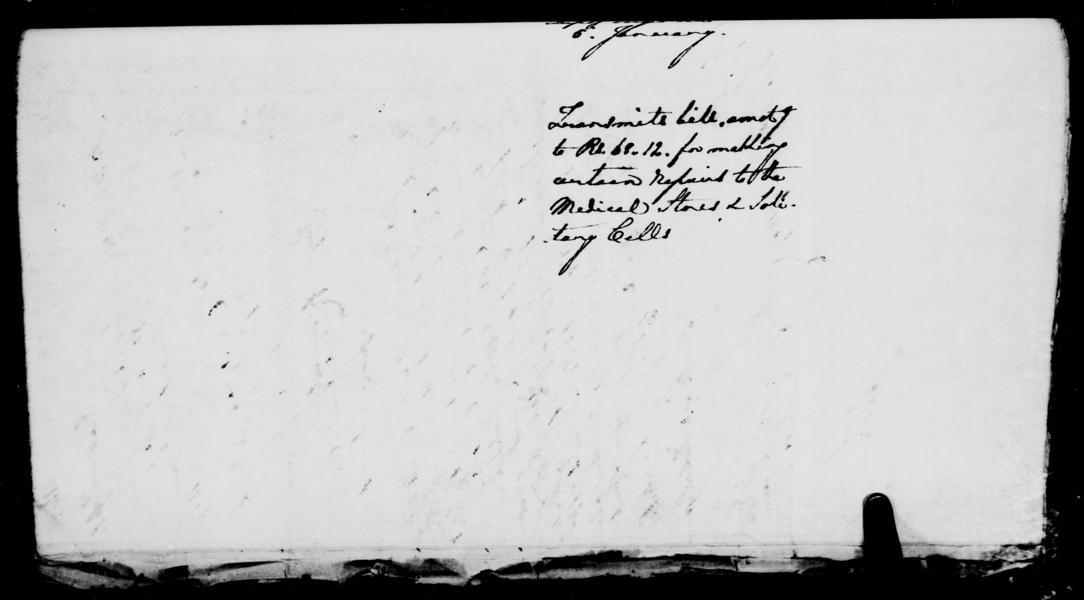 5. January.
Transmits bill, amotg
to Rs. 68.12. for making
certain repairs to the
Medical Stores & Soli-
-tary Cells